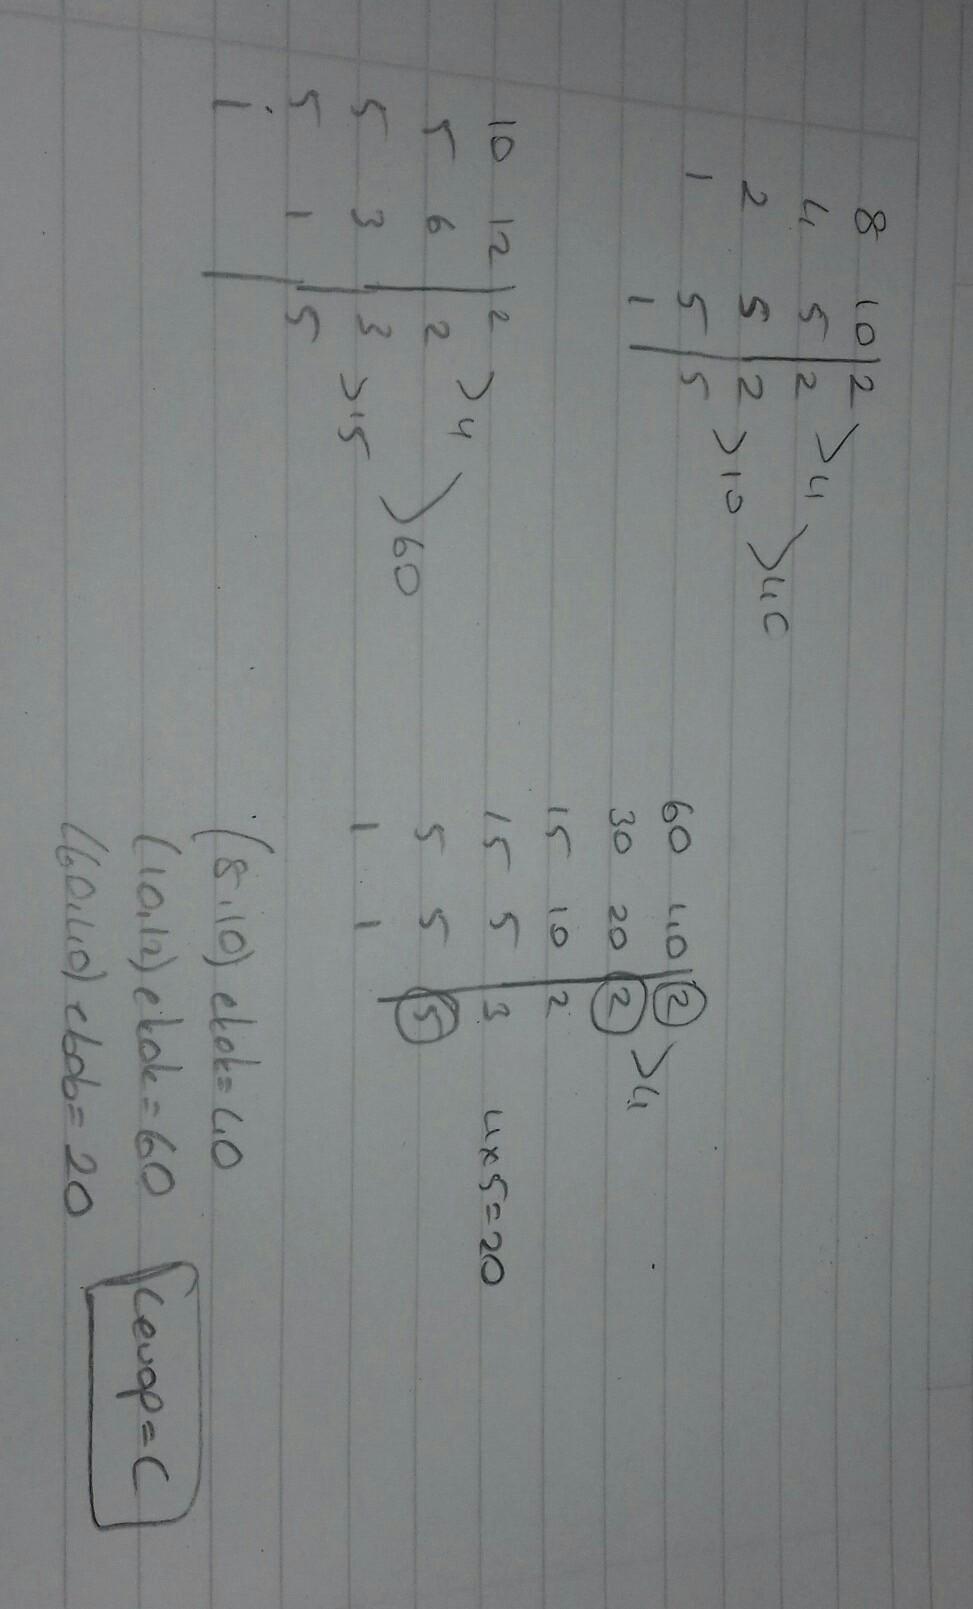 8 10 | 2
4 5 | 2 > 4
2 5 | 2 > 40
1 5 | 5 > 10
1
10 12 | 2
5 6 | 2 > 4
5 3 | 3 > 60
5 1 | 5 > 15
1
60 40 | 2
30 20 | 2 > 4
15 10 | 2
15 5 | 3 4x5=20
5 5 | 5
1 1
(8,10) ekok=40
(10,12) ekok=60
(60,40) ebob=20
Cevap=C